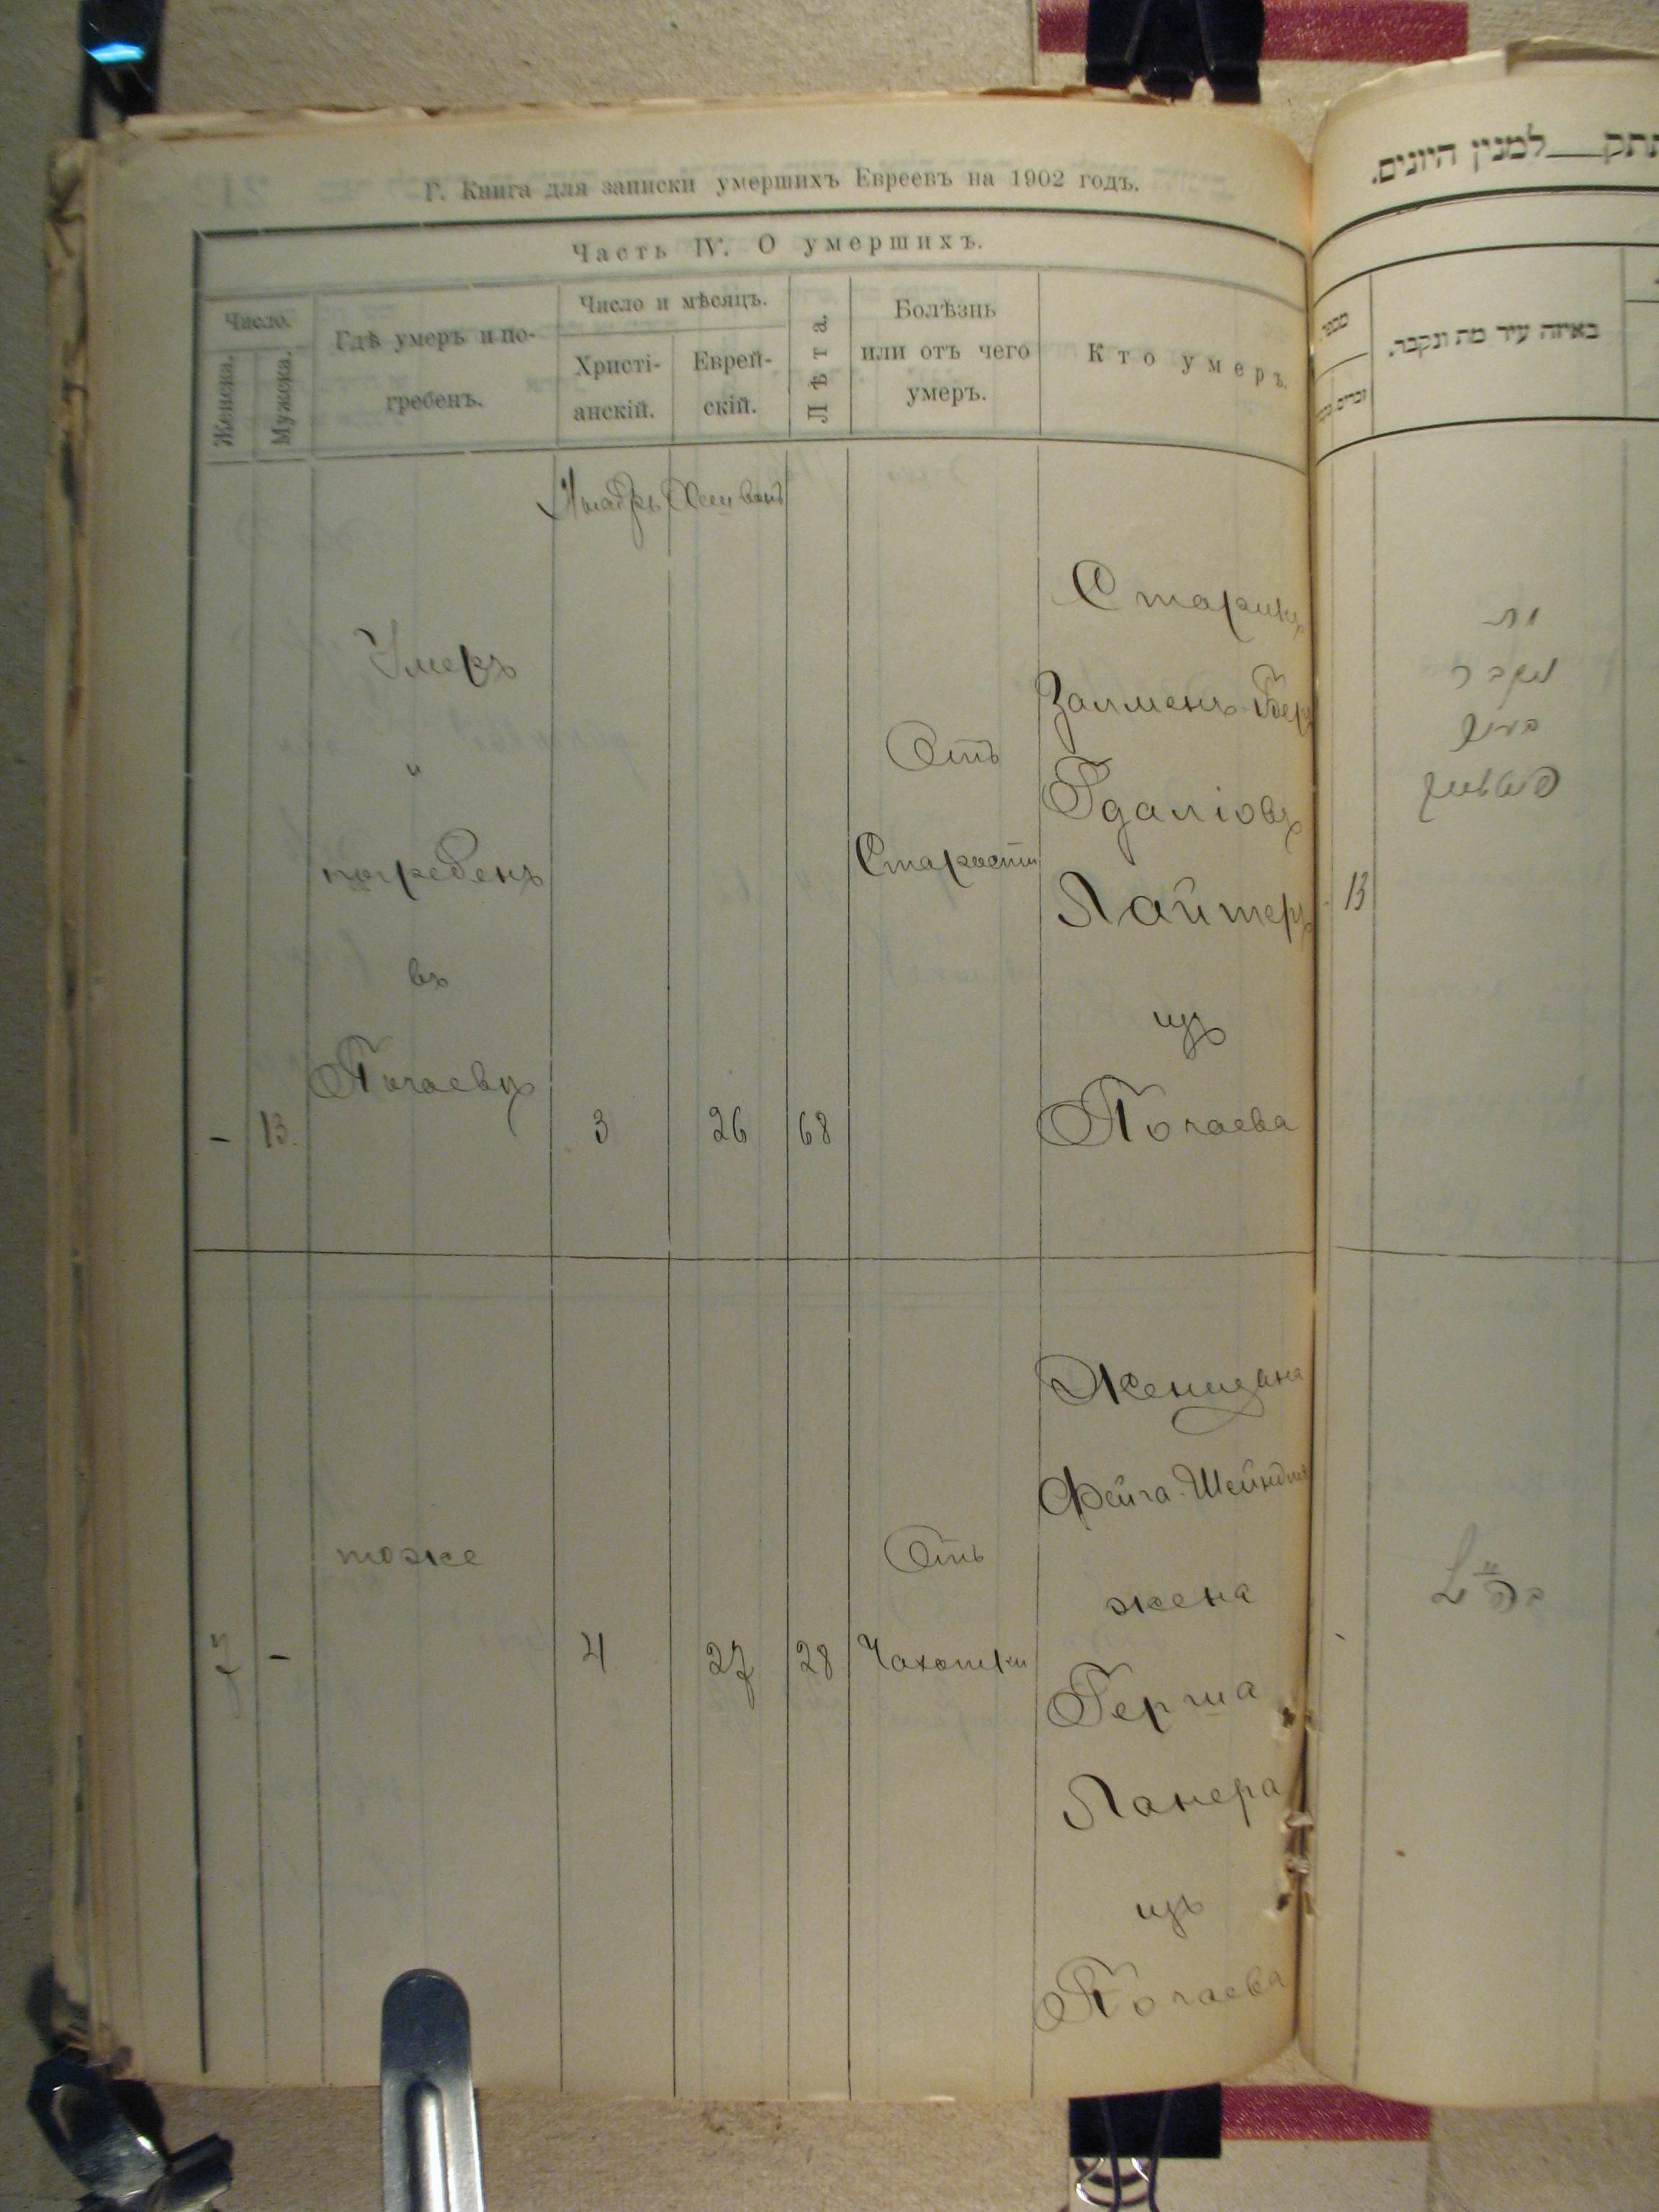 Г. Книга для записки умершихъ Евреевъ на 1902 годъ.
Часть IV. О умершихъ.
Число.
Женска.
Мужска.
Гдѣ умеръ и по-
гребенъ.
Число и мѣсяцъ.
Христі-
анскій.
Еврей-
скій.
Лѣта.
Болѣзнь
или отъ чего
умеръ.
Кто умеръ.
Умеръ
и
погребенъ
въ
Почаевѣ
-
13.
3
26
68
Отъ
Старости
Старикъ
Залменъ-Беръ
Гдаліовъ
Лайтеръ
изъ
Почаева
тоже
-
4
27
28
Отъ
Чахотки
Женщина
Фейга-Шейндля
жена
Герша
Ланера
изъ
Почаева
למנין היונים.
באיזה עיר מת ונקבר.
מת
נקבר
בעיר
13